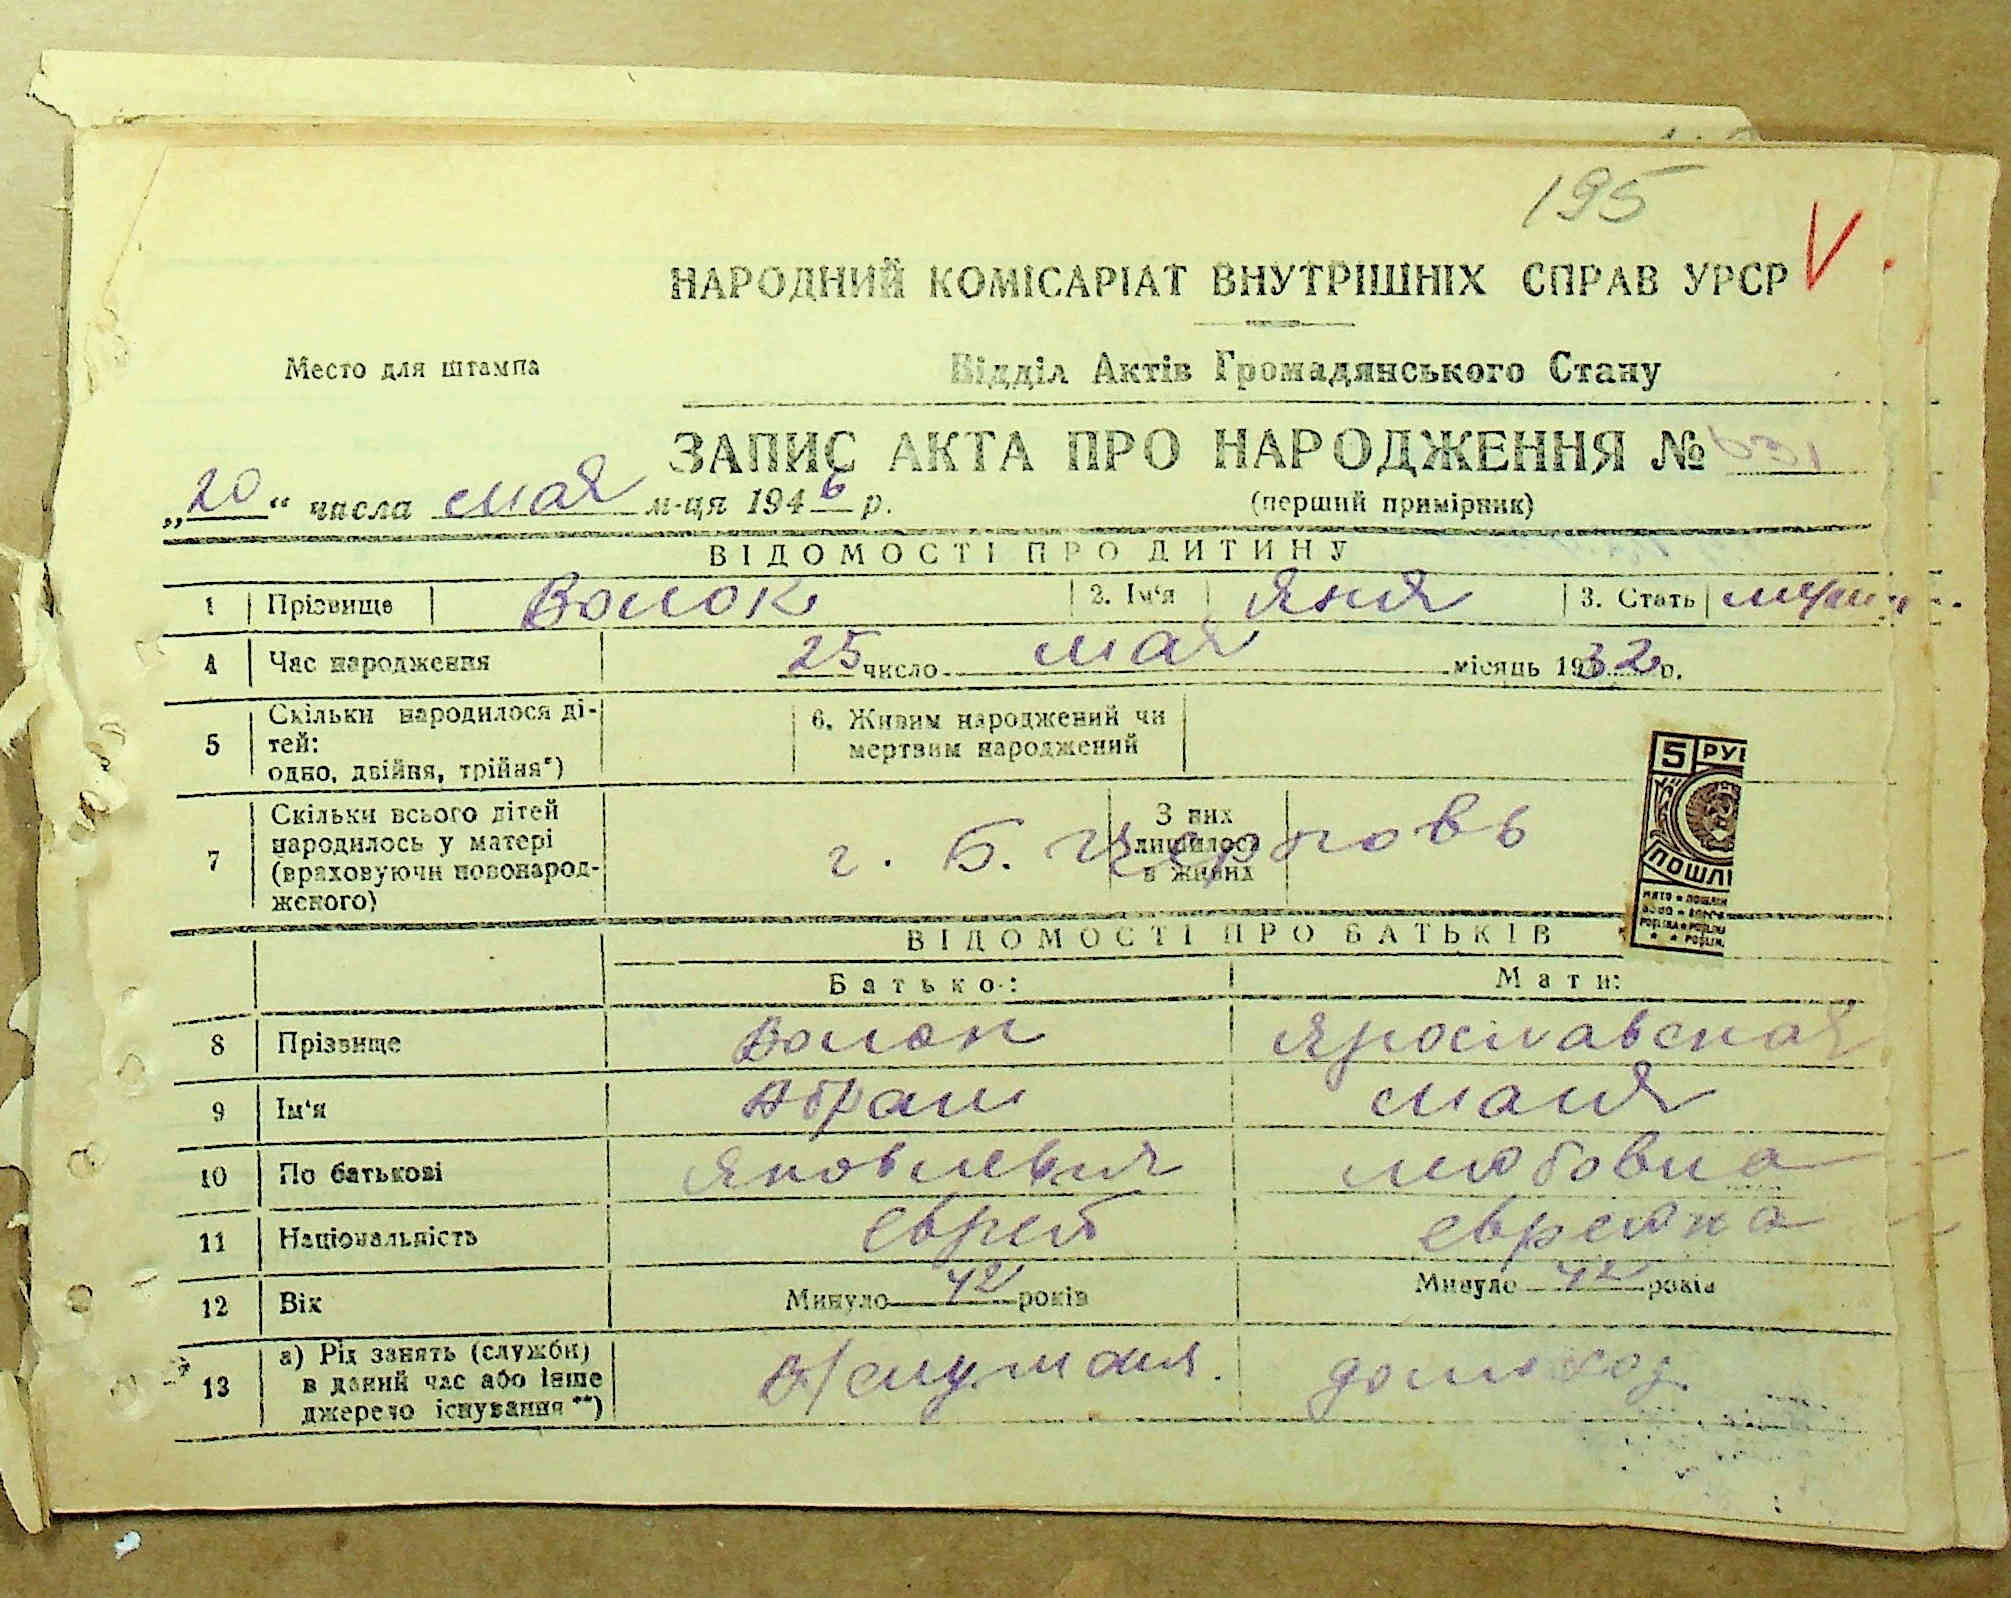 195
V
НАРОДНИЙ КОМІСАРІАТ ВНУТРІШНІХ СПРАВ УРСР
Место для штампа
Відділ Актів Громадянського Стану
ЗАПИС АКТА ПРО НАРОДЖЕННЯ № 631
„20“ числа мая м-ця 1946 р.
(перший примірник)
ВІДОМОСТІ ПРО ДИТИНУ
1 Прізвище Волок 2. Ім‘я Яня 3. Стать
4 Час народження 25 число мая місяць 1932 р.
5 Скільки народилося ді-
тей:
одно, двійня, трійня*)
6. Живим народжений чи
мертвим народжений
7 Скільки всього дітей
народилось у матері
(враховуючи новонарод-
женого)
З них
лишилося
в живих
г. Б. Церковь
5 РУБ
ПОШЛ
ВІДОМОСТІ ПРО БАТЬКІВ
Батько: Мати:
8 Прізвище Волок Ярославская
9 Ім‘я Абрам Маня
10 По батькові Яковлевич
11 Національність еврей еврейка
12 Вік Минуло 42 років Минуло 42 років
13 а) Рід занять (служби)
в даний час або інше
джерело існування **)
домохоз.